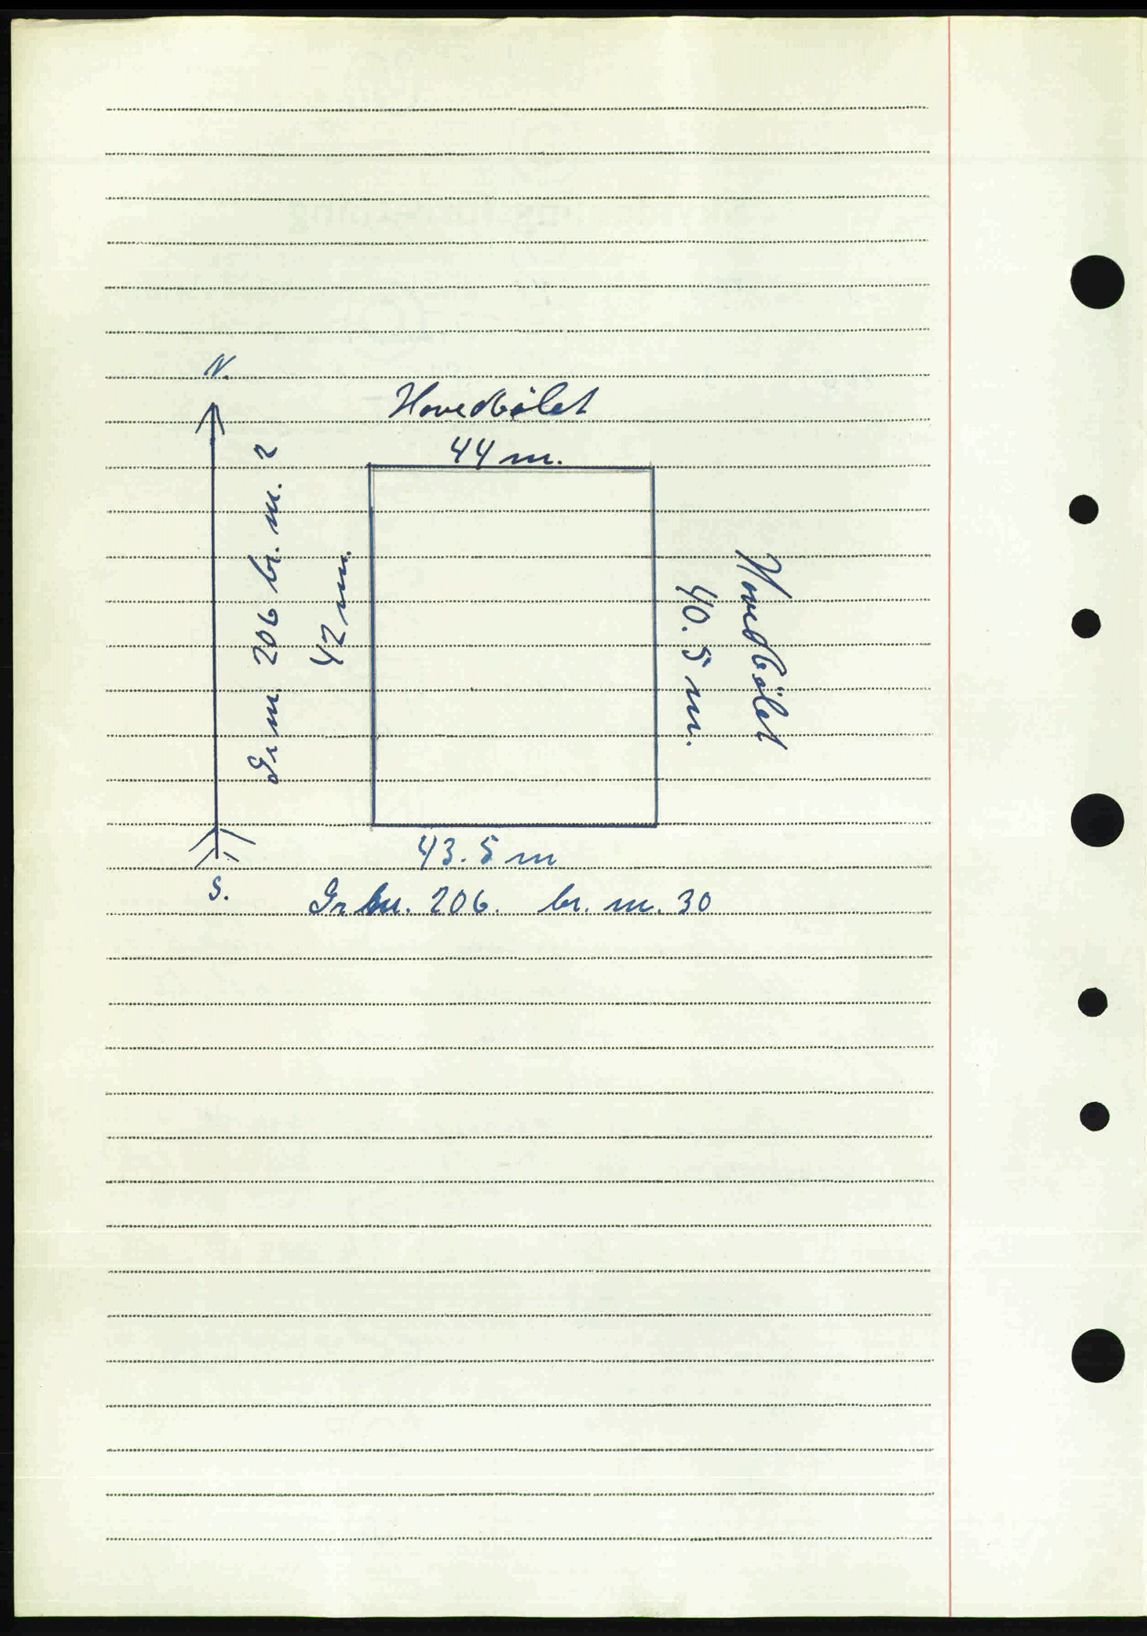 N.
Hovedbølet
44 m.
Gr. n. 206 br. n. 2
42 m.
40.5 m.
Hovedbølet
43.5 m
S.
Gr. n. 206. br. n. 30